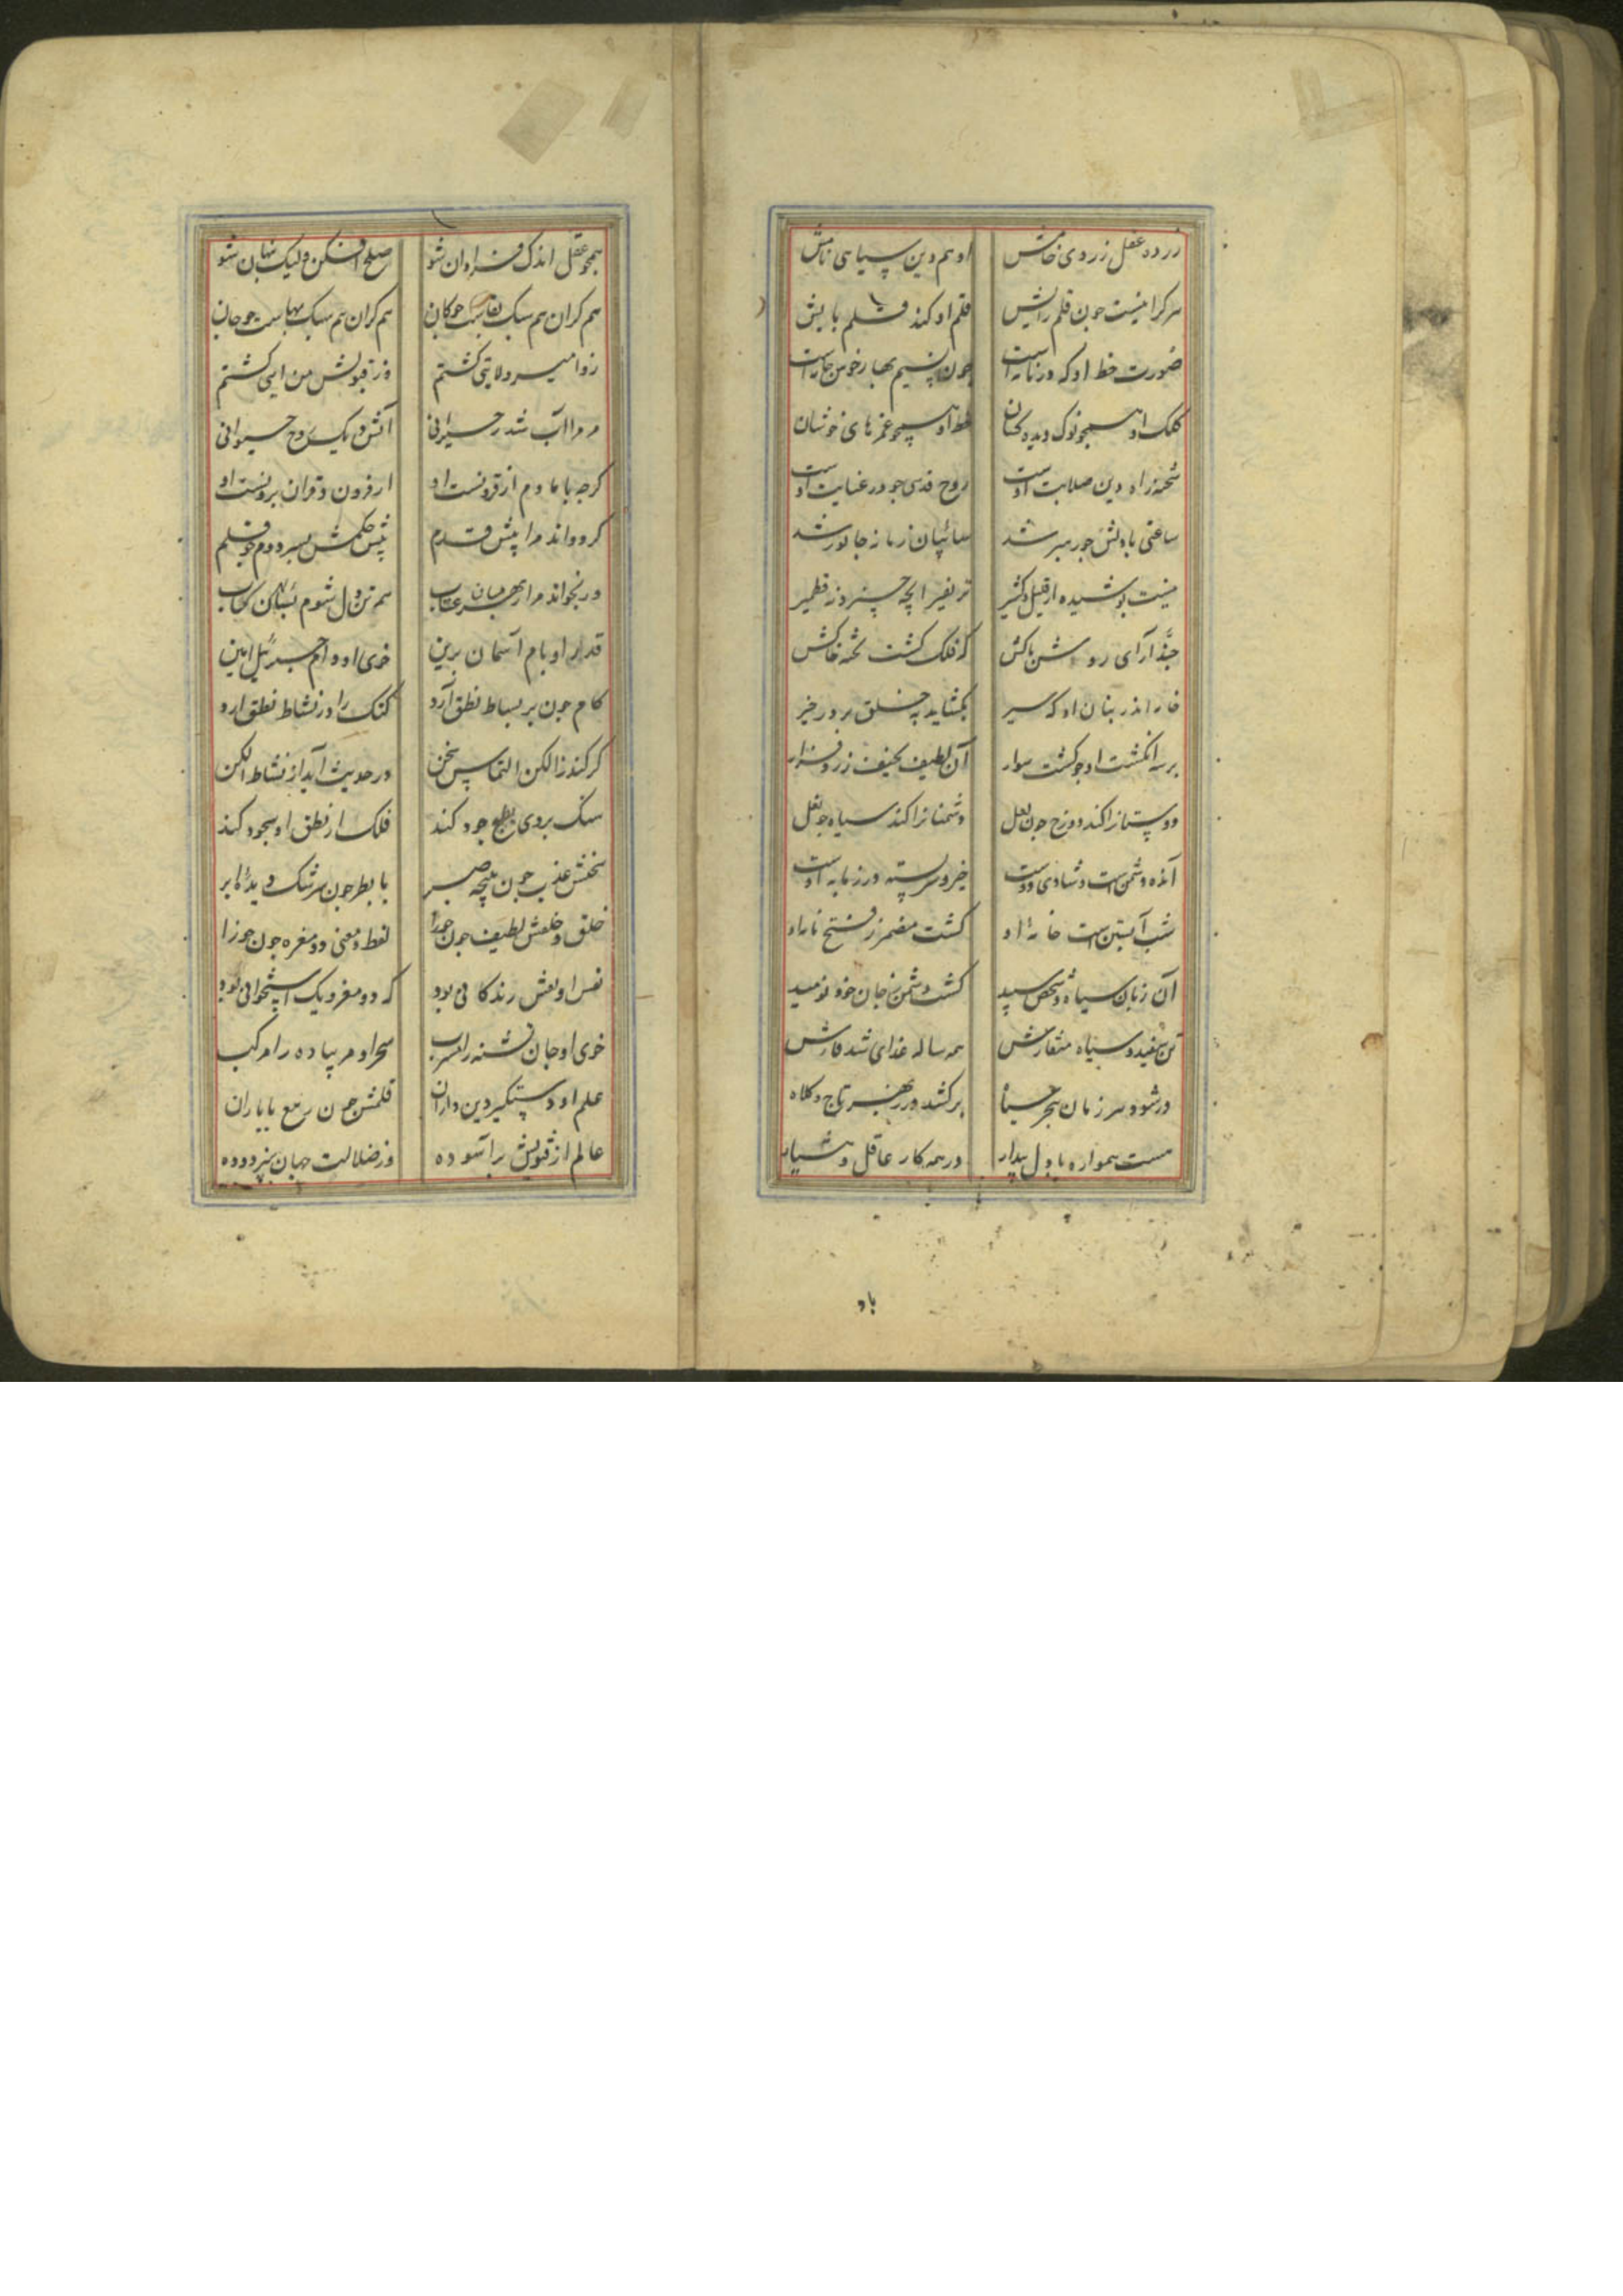 زرده عقل ز روی خامش او هم دین سیاهی نامش
هر کرا نیست جون قلم رایش قلم او کند قلم پایش
صورت خط او که در نامه است جون نسیم بهار خوش جامه است
کلک او همجو نوک دیده کشان خط او همجو غمزهای خوشان
شحنه راه دین صلابت اوست روح قدسی جو در عنایت اوست
ساعتی با دلش جو رهبر شد سائیان زمانه جانور شد
نیست بوشیده از قلیل و کثیر بر نفیر انچه جست در قطمیر
حبذا رای روشن باکش که فلک کشت تخته خاکش
خار اندر بنان او که سیر بکشاید به خلق بر در خیر
بر سر انکشت او جو کشت سوار آن لطیف نحیف زرد و نزار
دوستانرا کند دو رخ جون لعل دشمنانرا کند سیاه جو نعل
انده دشمن است و شادی دوست خیر و شر بسته در زبانه اوست
شب آبستن است خانه او کشت مضمر ز فتح نار او
آن زبان سیاه و شخص سپید کشت دشمن ز جان خود نومید
تن سفید و سیاه منقارش همه ساله غذای شد قارش
در شود هر زمان ببحر سیاه برکشد در ز بهر تاج و کلاه
مست همواره با دل بیدار در همه کار عاقل و هشیار
باد
همجو عقل اندک فراوان شو صلح افکن ولیک بنهان شو
هم کران هم سبک نفاست جو کان هم کران هم سبک بهاست جو جان
زو امیر ولایتی کشتم وز قبولش من ایتی کشتم
مر مرا آب شد ز حیرانی آتش و یک روح حیوانی
کرجه با ما و هم از قرونست او از قرون و قران برونست او
کر دواند مرا به پیش قدم پیش حکمش بسر دوم جو قلم
ور بخواند مرا ز بهر عتاب هم تن دل شوم بسان کتاب
قدر او بام آسمان برین خوی او دام جبرئیل امین
کام جون بر بساط نطق آرد کنک را در نشاط نطق ارد
کر کند ز الکن التماس سخن در حدیث آید از نشاط الکن
سنک بر وی بطبع جود کند فلک از نطق او سجود کند
سخنش عذب جون نتیجه صبر با بطر جون سرشک دیده ابر
خلق و خلقش لطیف جون جوزا لفظ و معنی دو مغزه جون جوزا
نفس او نقش زندکانی بود که دو مغز و یک استخوانی بود
خوی او جان تشنه را مشرب سحر او مر پیاده را مرکب
علم او دستگیر دین داران قلمش جون ربیع با باران
عالم از تقویش بر آسوده وز ضلالت جهان بپزدوده